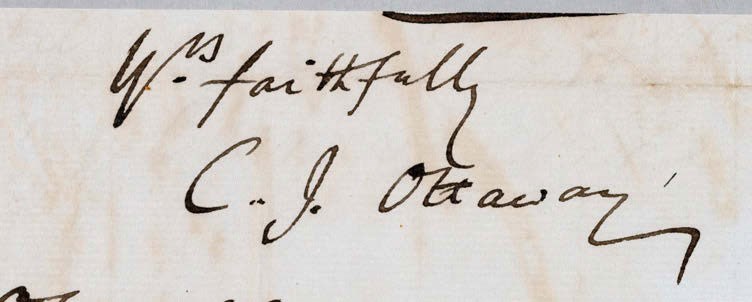 Yrs faithfully
C. J. Ottaway